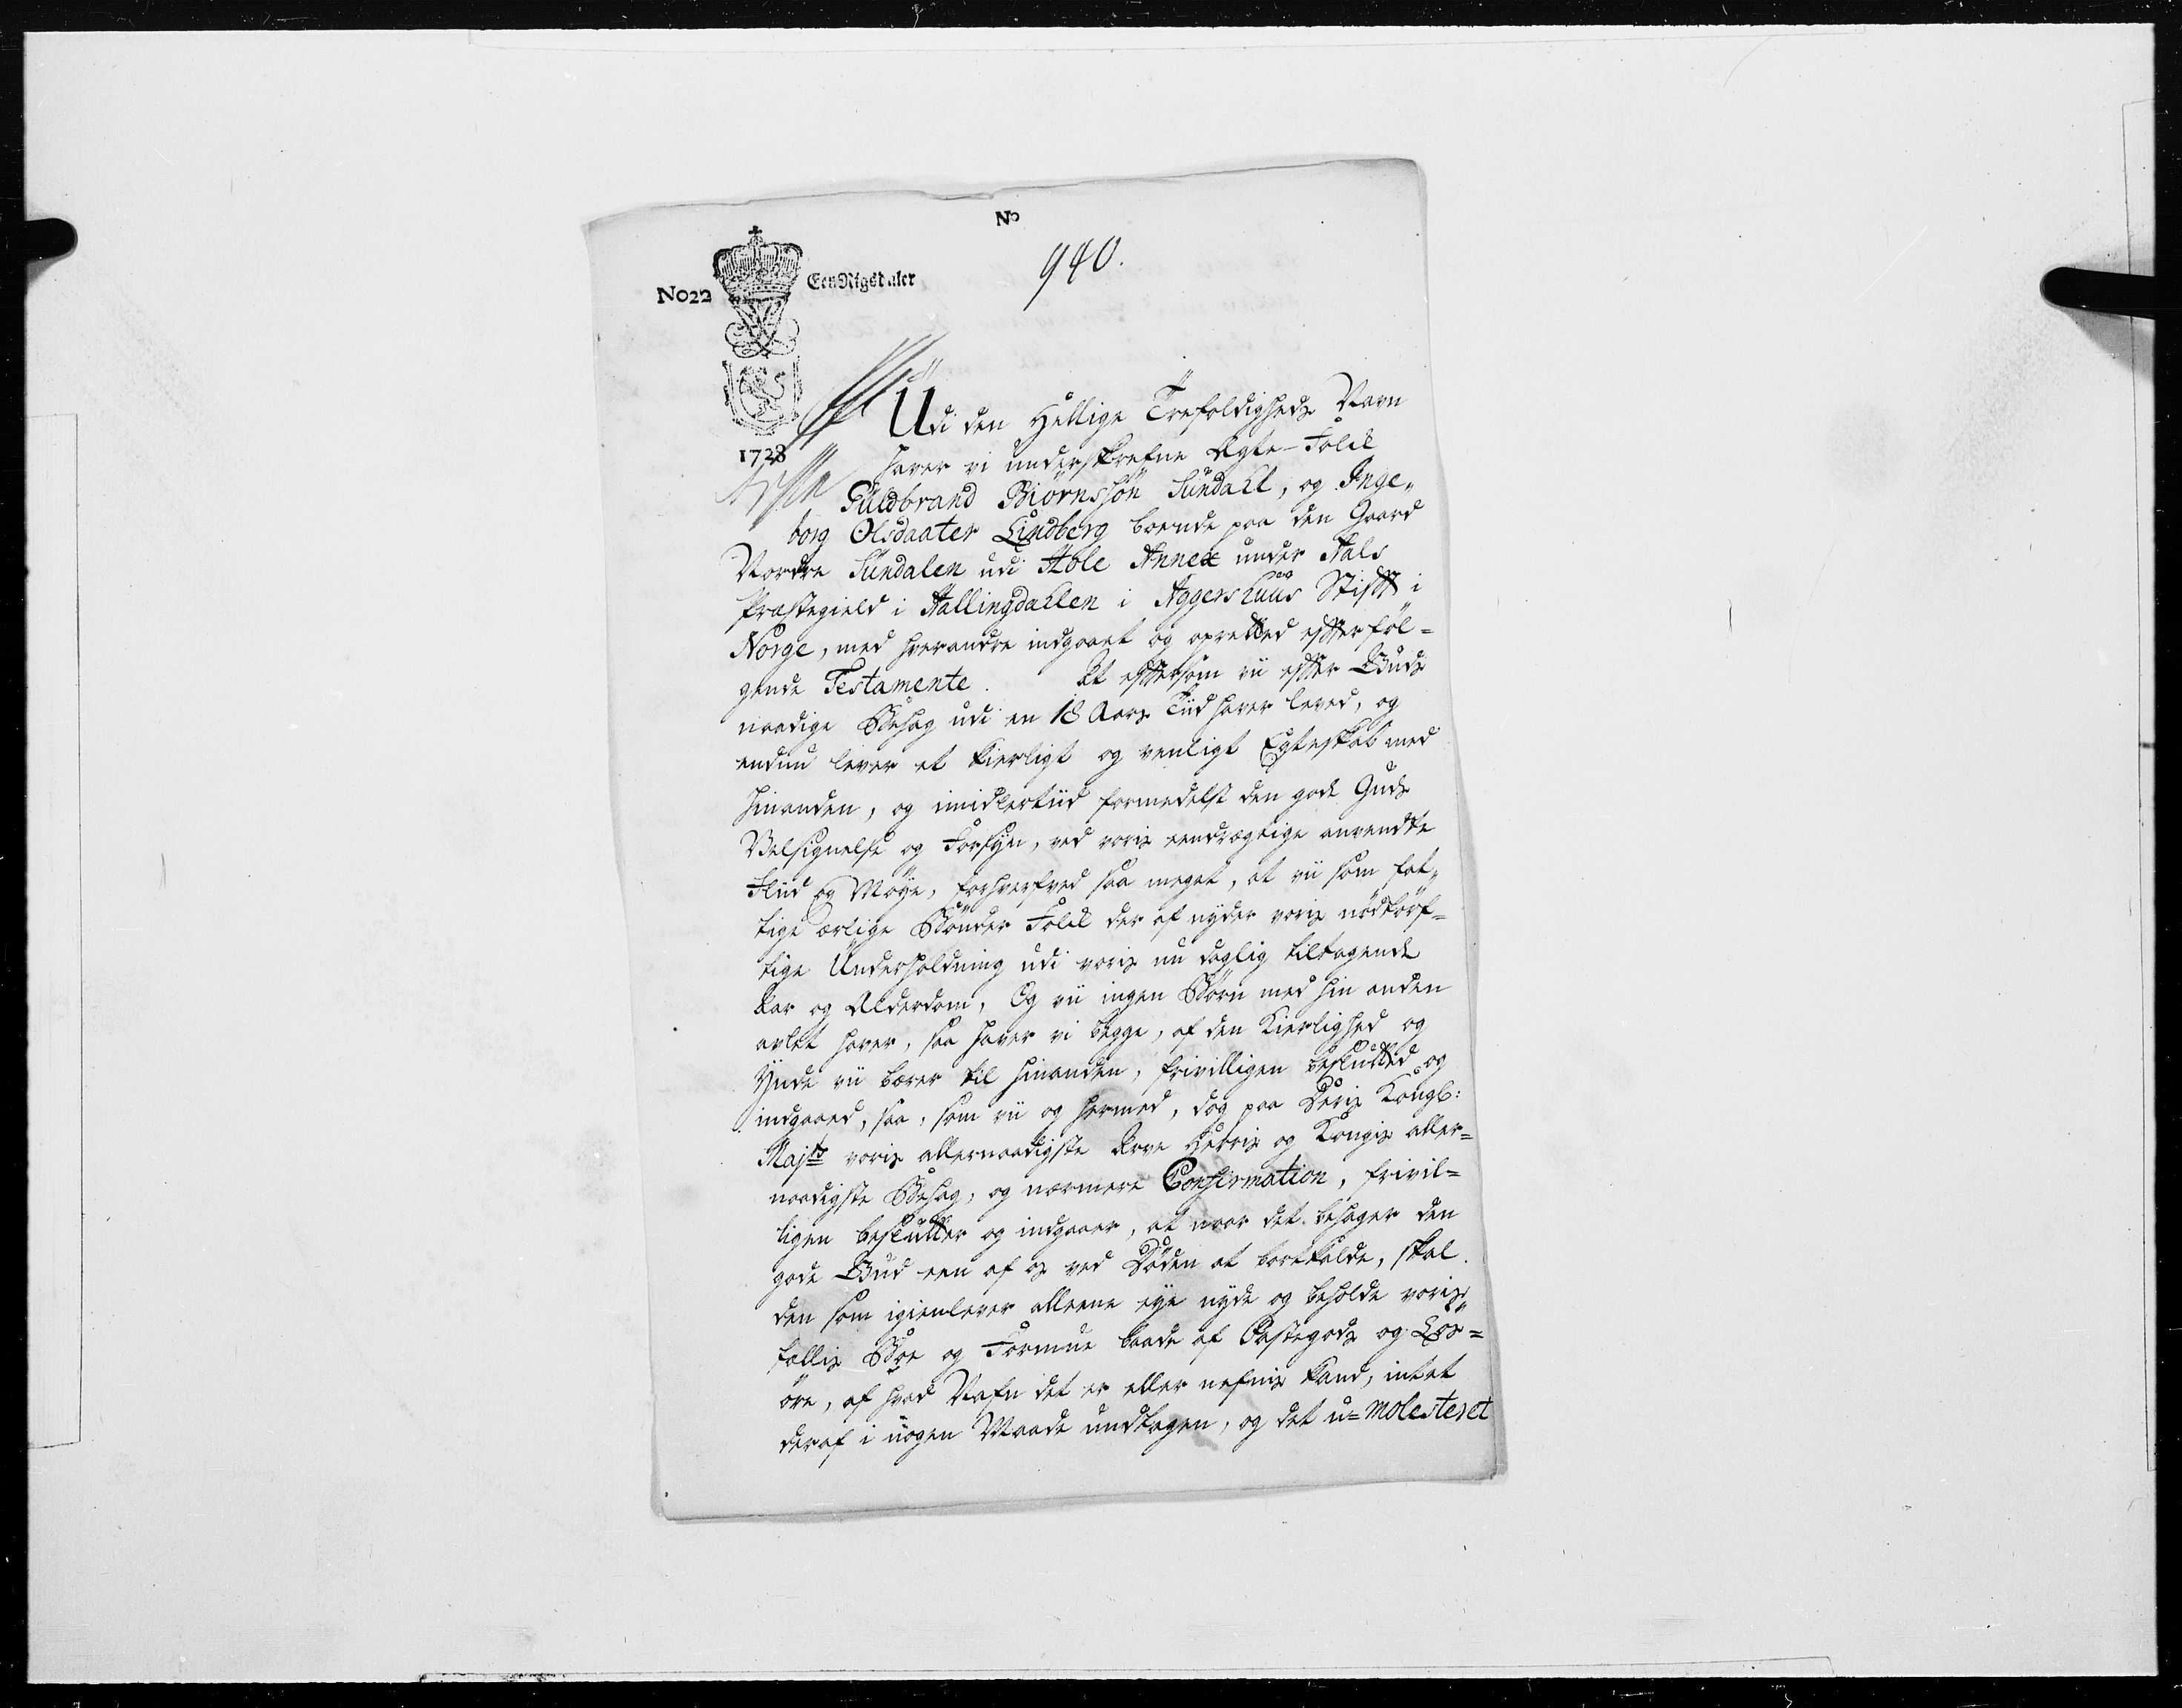 No
940.
No22
Een Rigsdaler
1728
Udi den Hellige Trefoldigheds Navn
haver vi underskrefne Ægte-Folck
Guldbrand Biörnssön Sündahl, og Inge„
borg Olsdaater Lindberg boende paa den Gaard
Nordre Sündalen udi Hole Annex under Aals
Præstegield i Hallingdahlen i Aggershuus Stifft i
Norge, med hverandre indgaaet og oprætted effterföl=
gende Testamente. At effersom vii effter Guds
naadige Behag udi en 18 Aars Tiid haver leved, og
endnu lever et kierligt og venligt Egteskab med
hinanden, og imidlertiid formedelst den gode Guds
Velsignelse og Forsyn, ved voris eendrægtige anvendte
Fliid og Möye, forhverfved saa meget, at vii som fat„
tige ærlige Bönder Folck der af nyder voris nödtörf=
tige Underholdning udi voris nu daglig tiltagende
Aar og Alderdom, Og vii ingen Börn med hin anden
avlet haver, saa haver vi begge, af den Kierlighed og
Ynde vii bærer til hinanden, frivilligen beslutted og
indgaaed, saa, som vii og hermed, dog paa Deris Kongl:
Majts voris allernaadigste Arve Herris og Kongis aller=
naadigste Behag, og nærmere Confirmation, frivil=
ligen beslutter og indgaaer, at naar det behager den
gode Gud een af os ved Döden at bortkalde, skal
den som igienlever alleene eye nyde og beholde voris
fællis Boe og Formue baade af Fastegods og Lös=
öre, af hvad Nafn det er eller nefnis kand, intet
deraf i nogen Maade undtagen, og det u=molesteret